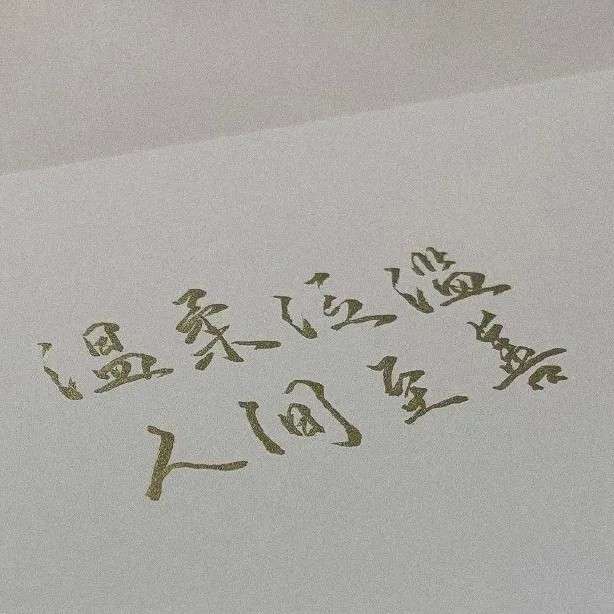 温柔泛滥
人间至善